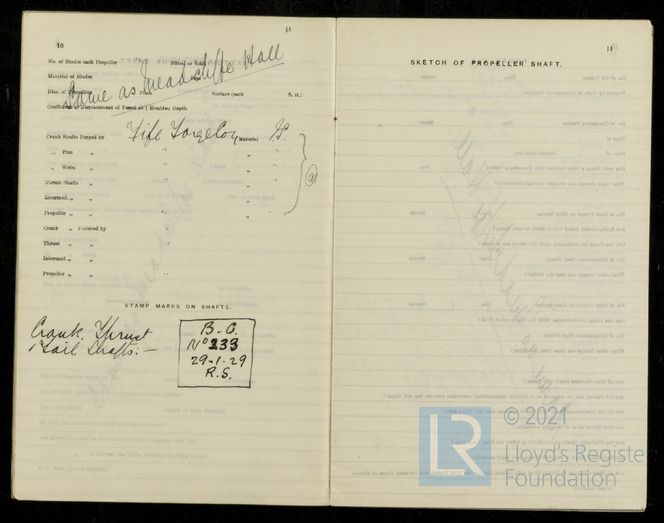 10
No. of Blades each Propeller " Fitted or Solid
Material of Blades
Same as Meadcliffe Hall
Dia. of Propellers Pitch Surface (each S. ft.)
Coefficient of Displacement of Vessel at ¾ Moulded Depth
Crank Shafts Forged by Fife Forge Coy Material
" Pins " "
" Webs " "
Thrust Shafts " "
Intermed. " " "
Propeller " " "
Crank " Finished by
Thrust " "
Intermed. " "
Propeller " "
STAMP MARKS ON SHAFTS.
Crank, Thrust
& Tail Shafts:—
B.C.
No 233
29-1-29
R.S.
11
SKETCH OF PROPELLER SHAFT.
LR
© 2021
Lloyd's Register
Foundation